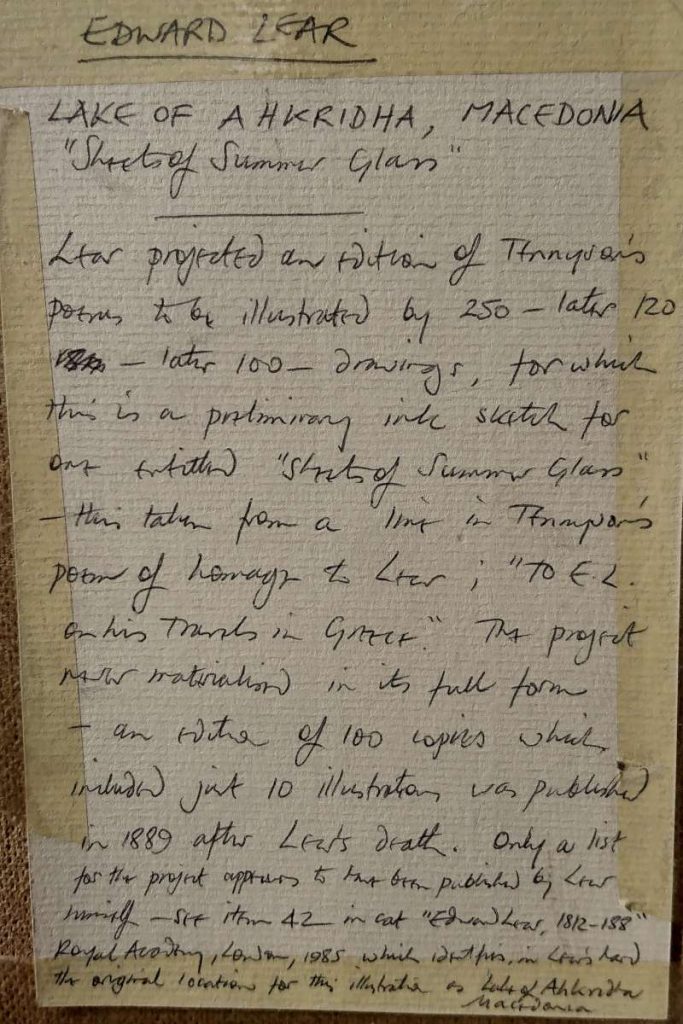 EDWARD LEAR
LAKE OF AHKRIDHA, MACEDONIA
"Sheets of Summer Glass"
Lear projected an edition of Tennyson's
poems to be illustrated by 250 – later 120
– later 100 – drawings, for which
this is a preliminary ink sketch for
one entitled "Sheets of Summer Glass"
– this taken from a line in Tennyson's
poem of homage to Lear; "TO E.L.
on his Travels in Greece." The project
never materialised in its full form
– an edition of 100 copies which
included just 10 illustrations was published
in 1889 after Lear's death. Only a list
for the project appears to have been published by Lear
himself – see item 42 in cat "Edward Lear, 1812–188"
Royal Academy, London, 1985 which identifies, in Lear's hand
the original location for this illustration as Lake of Ahkridha
Macedonia